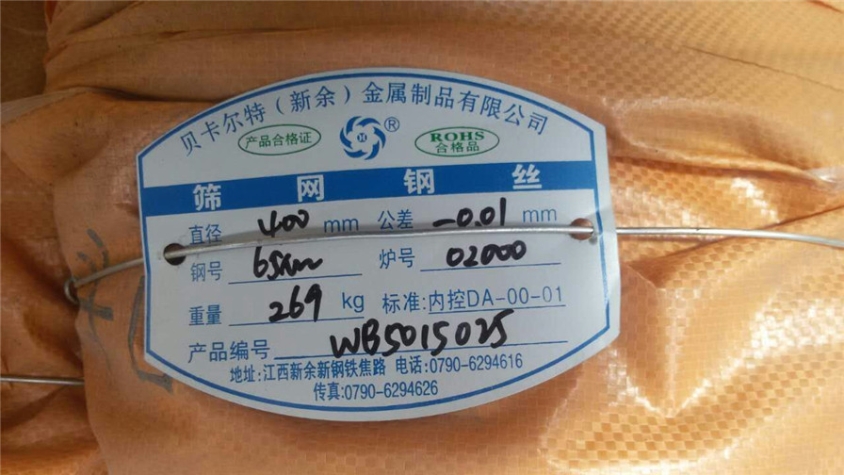 贝卡尔特（新余）金属制品有限公司
产品合格证 ® ROHS 合格品
筛网钢丝
直径 400 mm 公差 -0.01 mm
钢号 65Mn 炉号 02000
重量 269 kg 标准:内控DA-00-01
产品编号 WB5015025
地址:江西新余新钢铁焦路 电话:0790-6294616
传真:0790-6294626